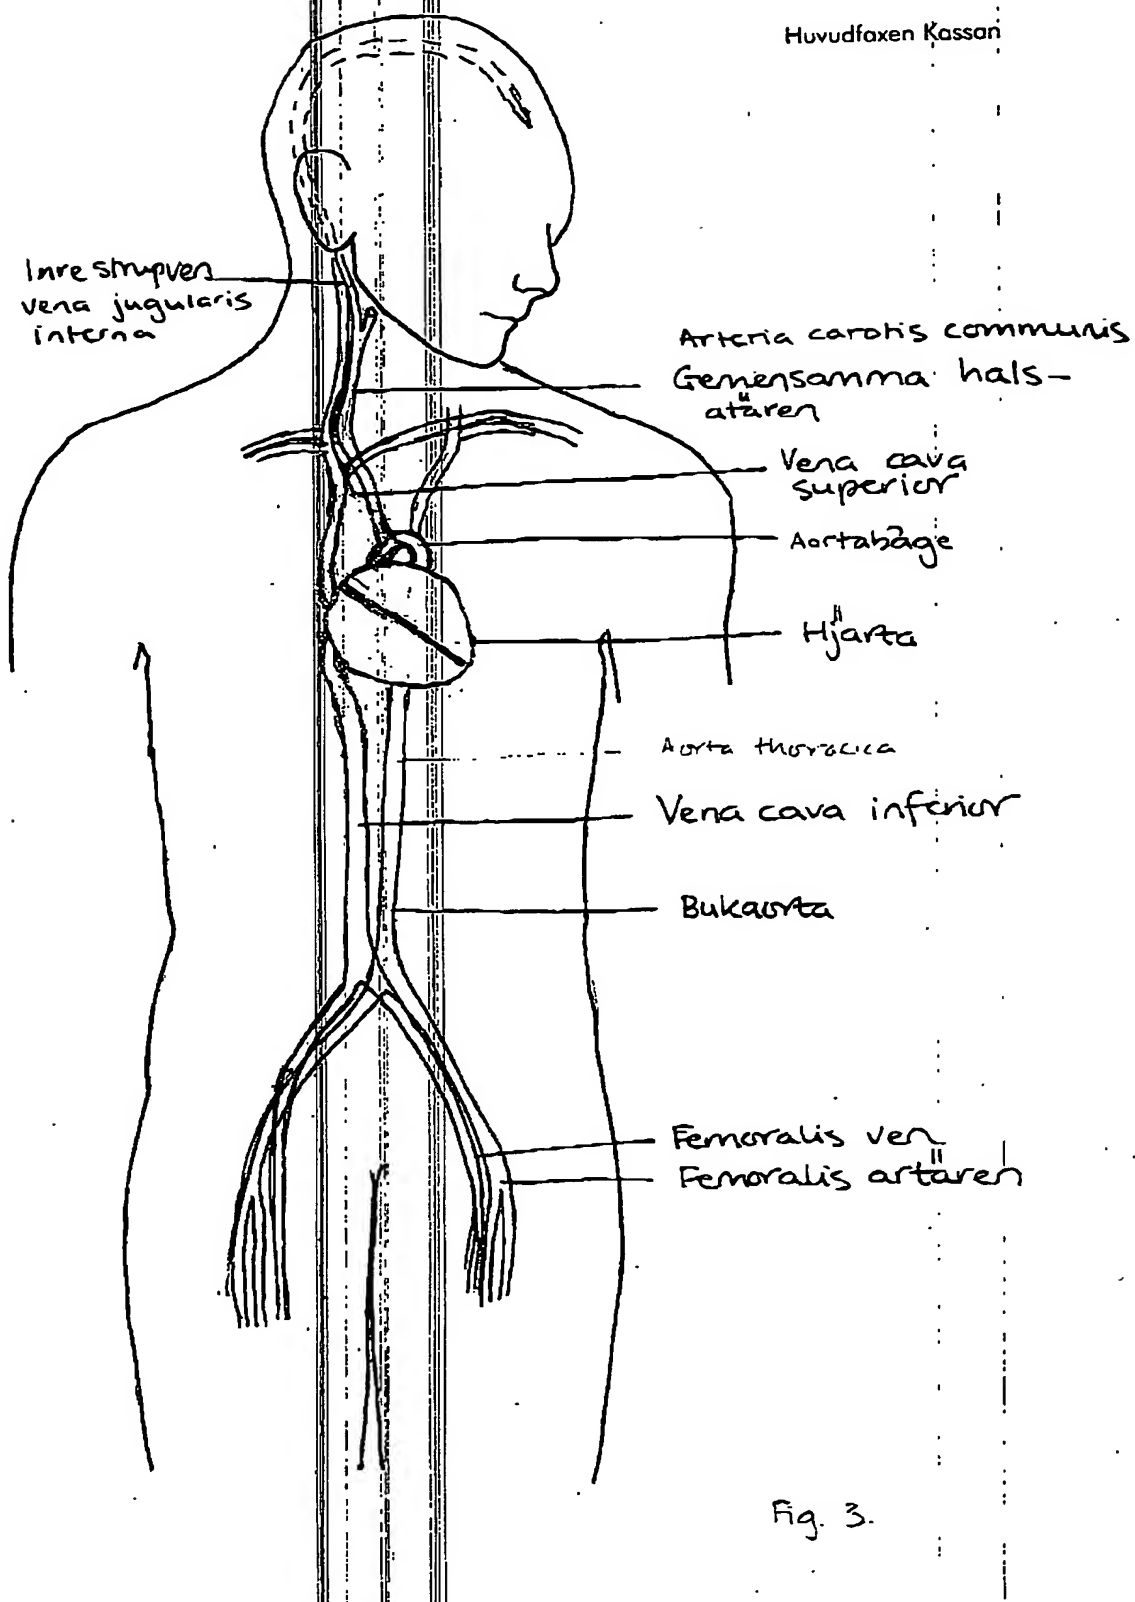 Huvudfaxen Kassan
Inre strupven
vena jugularis
interna
Arteria carotis communis
Gemensamma hals-
atären
Vena cava
superior
Aortabåge
Hjärta
Aorta thoracica
Vena cava inferior
Bukaorta
Femoralis ven
Femoralis artären
Fig. 3.